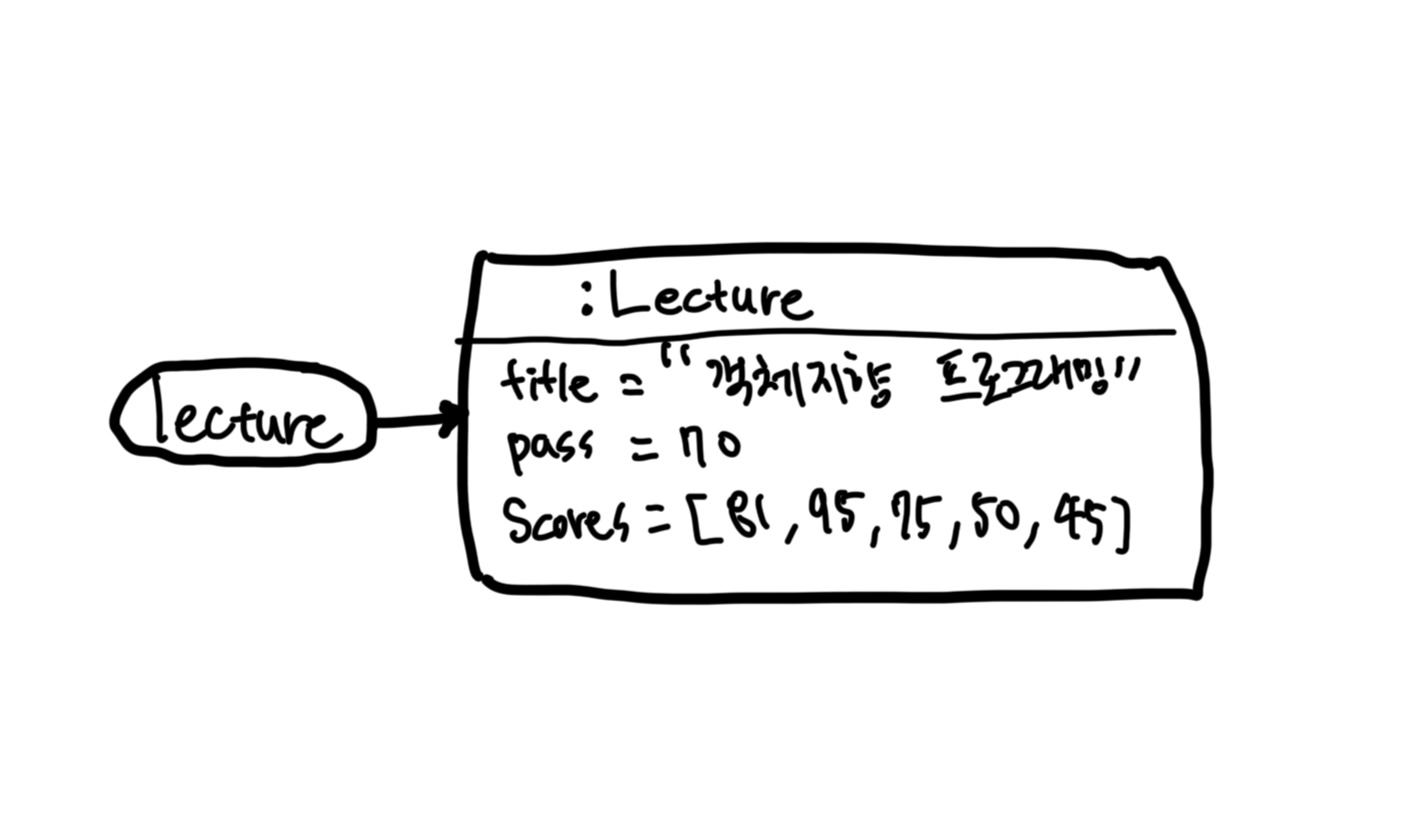 lecture
:Lecture
title = "객체지향 프로그래밍"
pass = 70
Scores = [81, 95, 75, 50, 45]